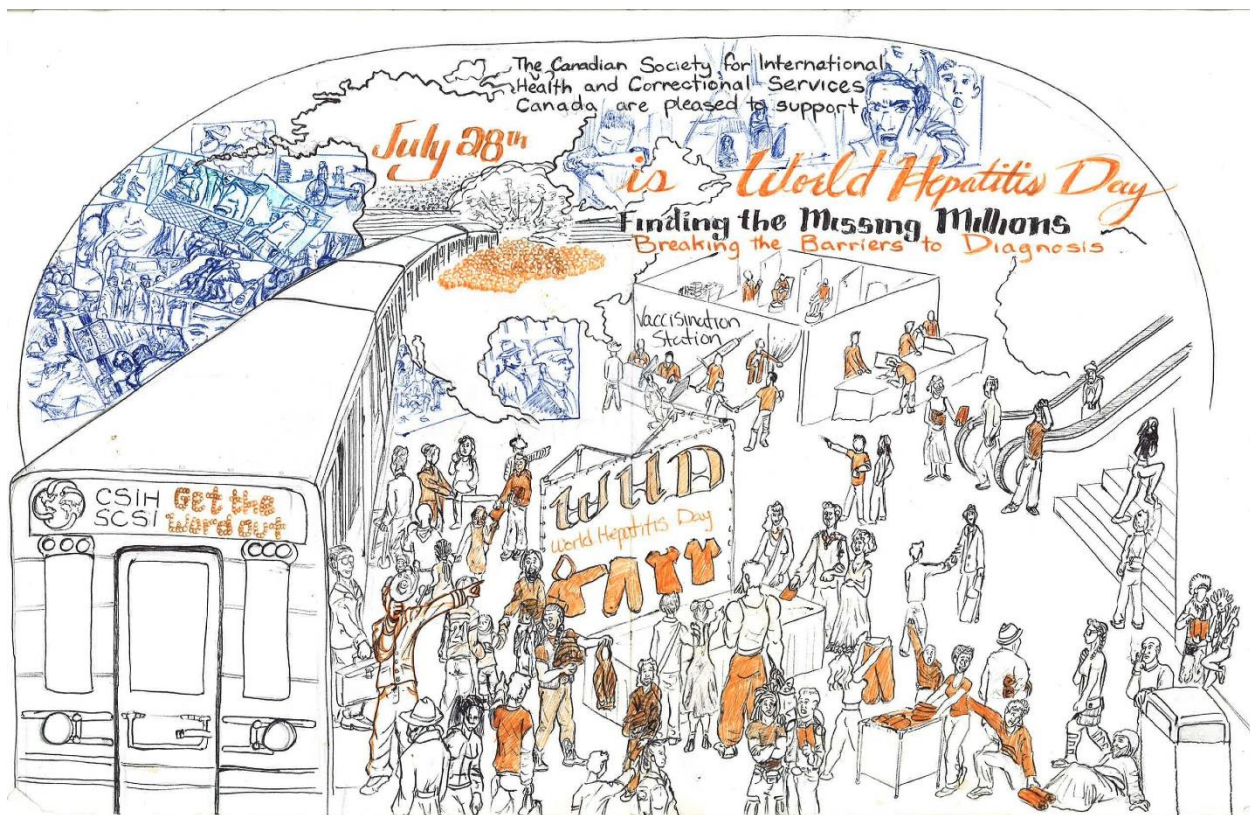 The Canadian Society for International
Health and Correctional Services
Canada are pleased to support
July 28th
is World Hepatitis Day
Finding the Missing Millions
Breaking the Barriers to Diagnosis
Vaccisination
Station
WHD
World Hepatitis Day
CSIH
SCSI
Get the
word out